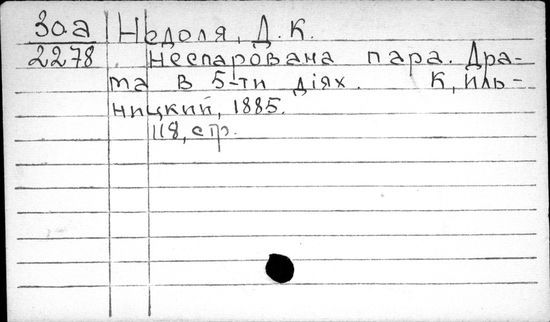 Зоа Недоля, Д. К.
2278 Неспарована пара. Дра-
та в 5-ти діях. К, Иль-
ницкий, 1885.
118, стр.